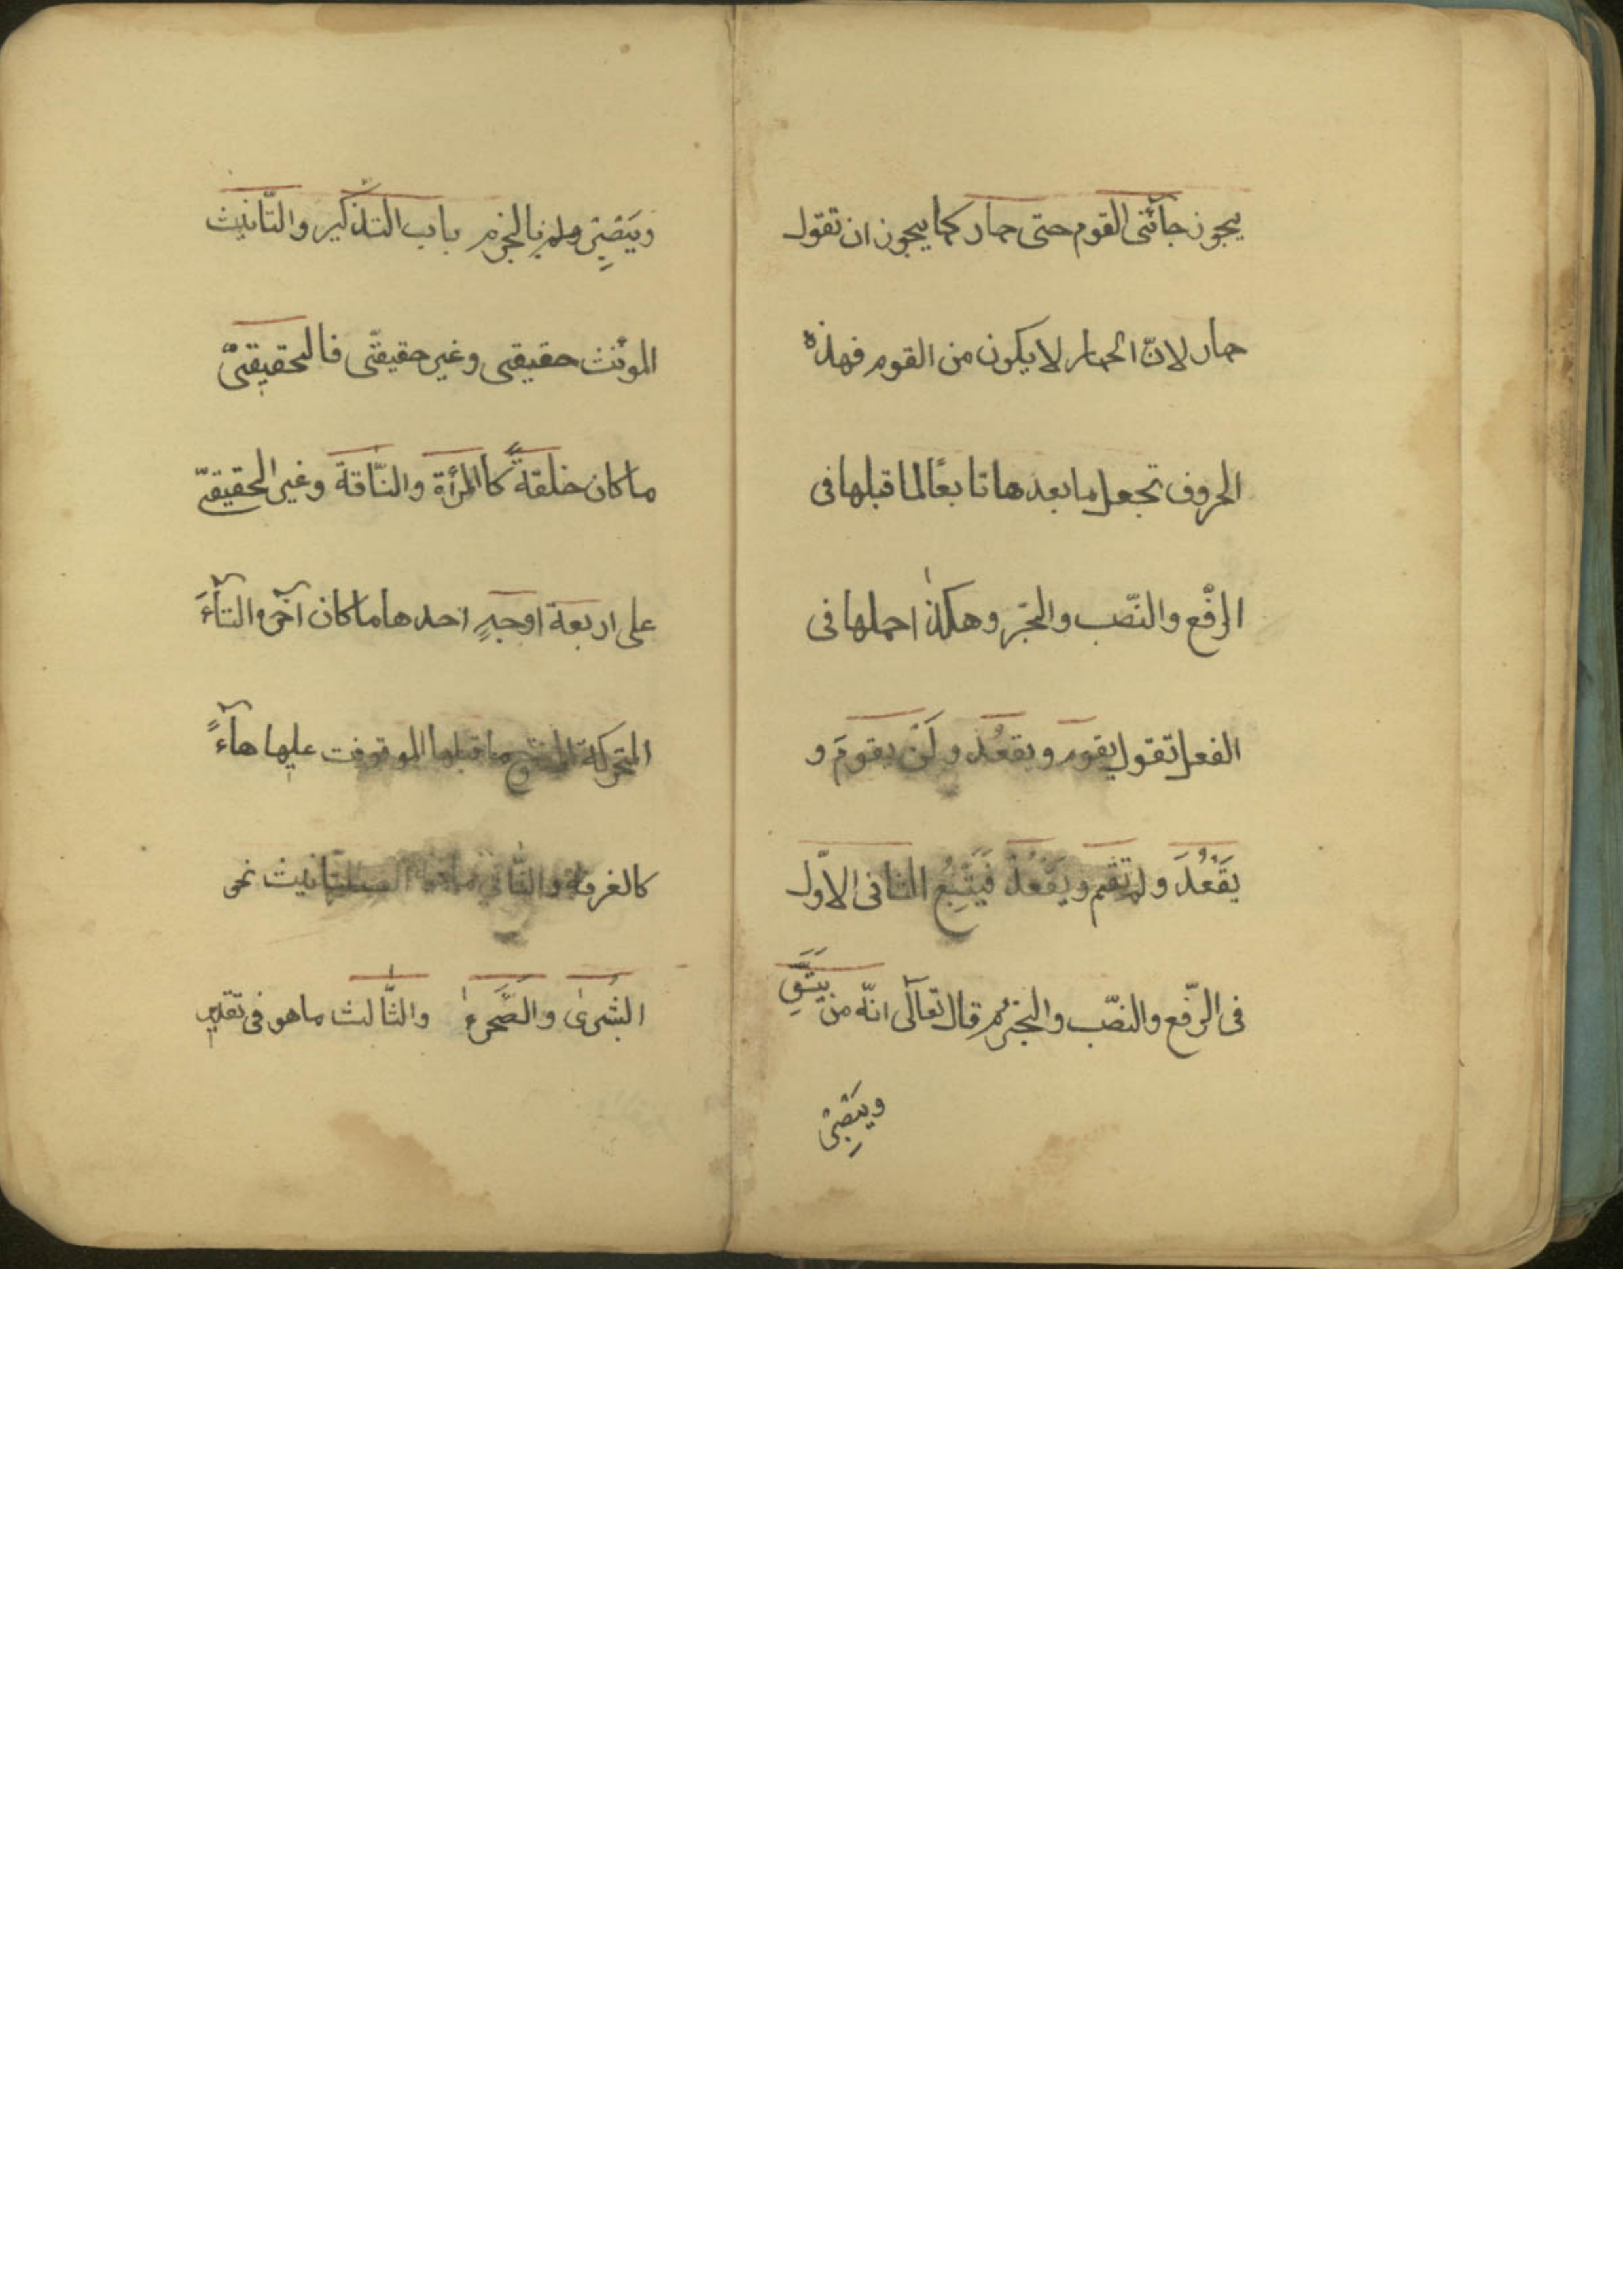 يجوز جآئنى القوم حتى حمار كما يجوز ان تقول
حمار لانّ الحمار لا يكون من القوم فهذه
الحروف تجعل ما بعدها تابعًا لما قبلها فى
الرفْع والنصّب والجّر وهكذا احملها فى
الفعل تقول يقوم ويقعُد ولَنْ يقومَ و
يَقْعُدَ ولم تقم ويَقْعُدْ فَيَتبِعُ الثانى الاوّل
فى الرّفع والنصّب والجزم قال تعآلى انّه من يَتَّقِ
ويَصْبِرْ
ويَصْبِرْ بالجزم باب التذكير والتّانيث
المؤنث حقيقى وغير حقيقّى فالحقيقىْ
ما كان خلقةً كالمرأة والنّاقة وغير الحقيقىّ
على اربعة اوجهٍ احدها ما كان آخره التآءَ
المتحركة ما قبلها الموقوفت عليها هآءً
كالغرفة والثانى للتّانيث نحو
البُشرىٰ والصَّحرٰء والثّالث ما هو فى تقدير